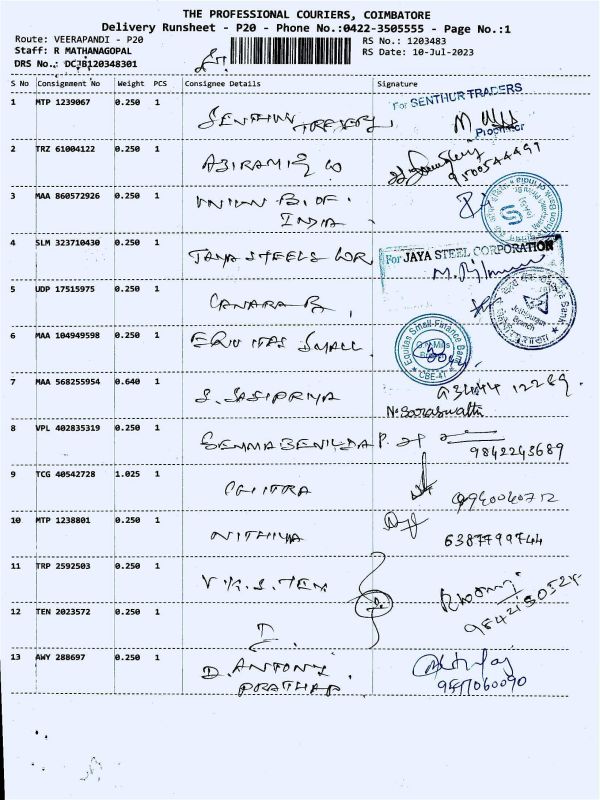 THE PROFESSIONAL COURIERS, COIMBATORE
Delivery Runsheet - P20 - Phone No.:0422-3505555 - Page No.:1
Route: VEERAPANDI - P20 RS No.: 1203483
Staff: R MATHANAGOPAL RS Date: 10-Jul-2023
DRS No.: DCJB120348301
S No Consignment No Weight PCS Consignee Details Signature
1 MTP 1239067 0.250 1 For SENTHUR TRADERS
Proprietor
2 TRZ 61004122 0.250 1 ABIRAMI 9500544491
3 MAA 860572926 0.250 1 UNION B. OF.
INDIA
4 SLM 323710430 0.250 1 JAYA STEELS COR For JAYA STEEL CORPORATION
5 UDP 17515975 0.250 1 CANARA B,
6 MAA 104949598 0.250 1 Equitas Small Finance Bank
CBE-47
7 MAA 568255954 0.640 1 S. SASIPRIYA
N. Saraswathi
8 VPL 402835319 0.250 1 9842243689
9 TCG 40542728 1.025 1 CHITRA
10 MTP 1238801 0.250 1 NITHIYA 6387799744
11 TRP 2592503 0.250 1 V.K.S. TEX
12 TEN 2023572 0.250 1
13 AWY 288697 0.250 1 D. ANTONY
PRATHAP